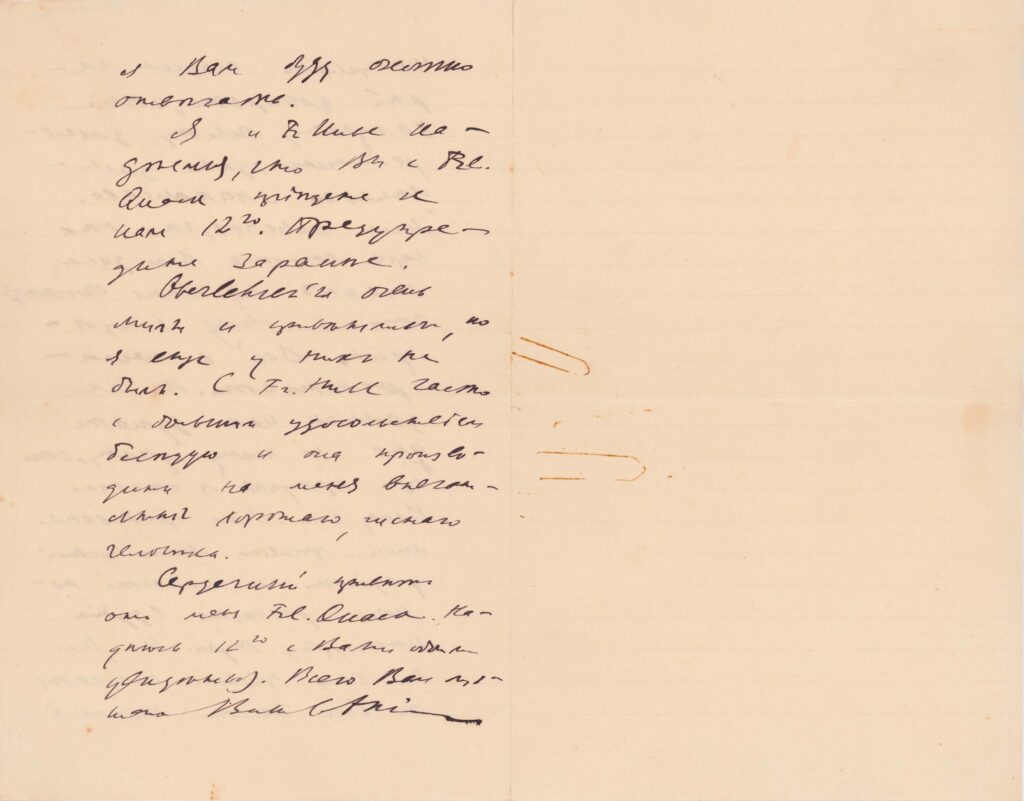 я Вам буду охотно
отвечать.
Я и Fr. Hell на-
дѣемся, что Вы с Frl.
придете к
нам 12го. Предупре-
дите заранѣе.
Oberlehrer'и очень
милы и привѣтливы, но
я еще у нихъ не
былъ. С Fr. Hell часто
с большим удовольствіем
бесѣдую и она произво-
дитъ на меня впечат-
лѣніе хорошаго, чистаго
человѣка.
Сердечный привѣтъ
от меня Frl. На-
дѣюсь 12го с Вами обѣими
увидѣться. Всего Вам